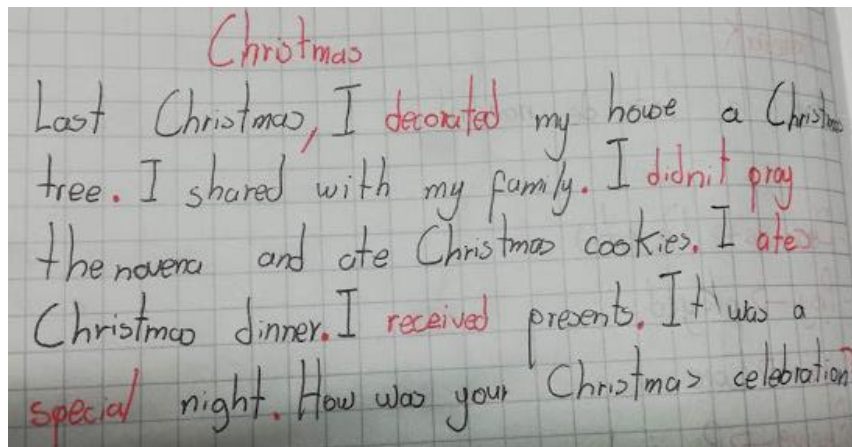 Christmas
Last Christmas, I decorated my house a Christmas
tree. I shared with my family. I didn't pray
the novena and ate Christmas cookies. I ate
Christmas dinner. I received presents. It was a
special night. How was your Christmas celebration